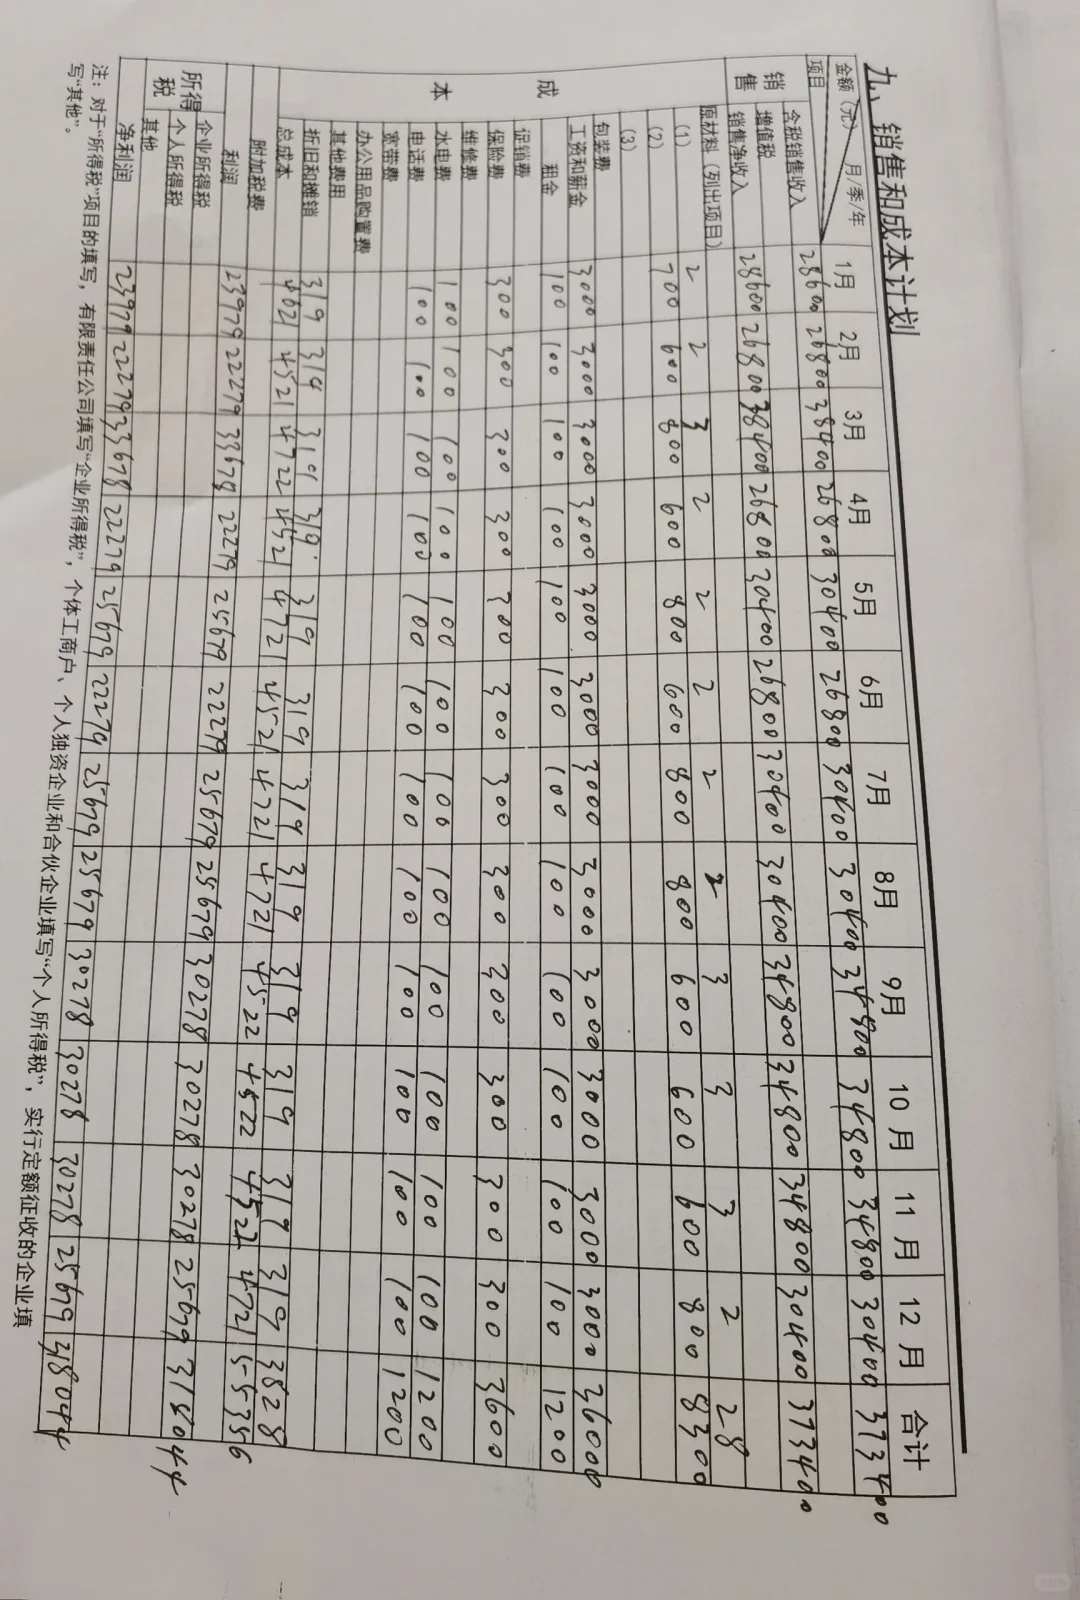 九、销售和成本计划
金额（元） 月/季/年 项目 1月 2月 3月 4月 5月 6月 7月 8月 9月 10月 11月 12月 合计
销售
含税销售收入 28600 26800 38400 26800 30400 26800 30400 30400 34800 34800 34800 30400 373400
增值税
销售净收入 28600 26800 38400 26800 30400 26800 30400 30400 34800 34800 34800 30400 373400
成本
原材料（列出项目） 2 2 3 2 2 2 2 2 3 3 3 2 28
(1) 700 600 800 600 800 600 800 800 600 600 600 800 8300
(2)
(3)
包装费
工资和薪金 3000 3000 3000 3000 3000 3000 3000 3000 3000 3000 3000 3000 36000
租金 100 100 100 100 100 100 100 100 100 100 100 100 1200
促销费
保险费 300 300 300 300 300 300 300 300 300 300 300 300 3600
维修费
水电费 100 100 100 100 100 100 100 100 100 100 100 100 1200
电话费 100 100 100 100 100 100 100 100 100 100 100 100 1200
宽带费
办公用品购置费
其他费用
折旧和摊销 319 319 319 319 319 319 319 319 319 319 319 319 3828
总成本 4621 4521 4722 4521 4721 4521 4721 4721 4522 4522 4522 4721 55356
附加税费
利润 23979 22279 33678 22279 25679 22279 25679 25679 30278 30278 30278 25679 318044
所得税
企业所得税
个人所得税
其他
净利润 23979 22279 33678 22279 25679 22279 25679 25679 30278 30278 30278 25679 318044
注：对于“所得税”项目的填写，有限责任公司填写“企业所得税”，个体工商户、个人独资企业和合伙企业填写“个人所得税”，实行定额征收的企业填
写“其他”。